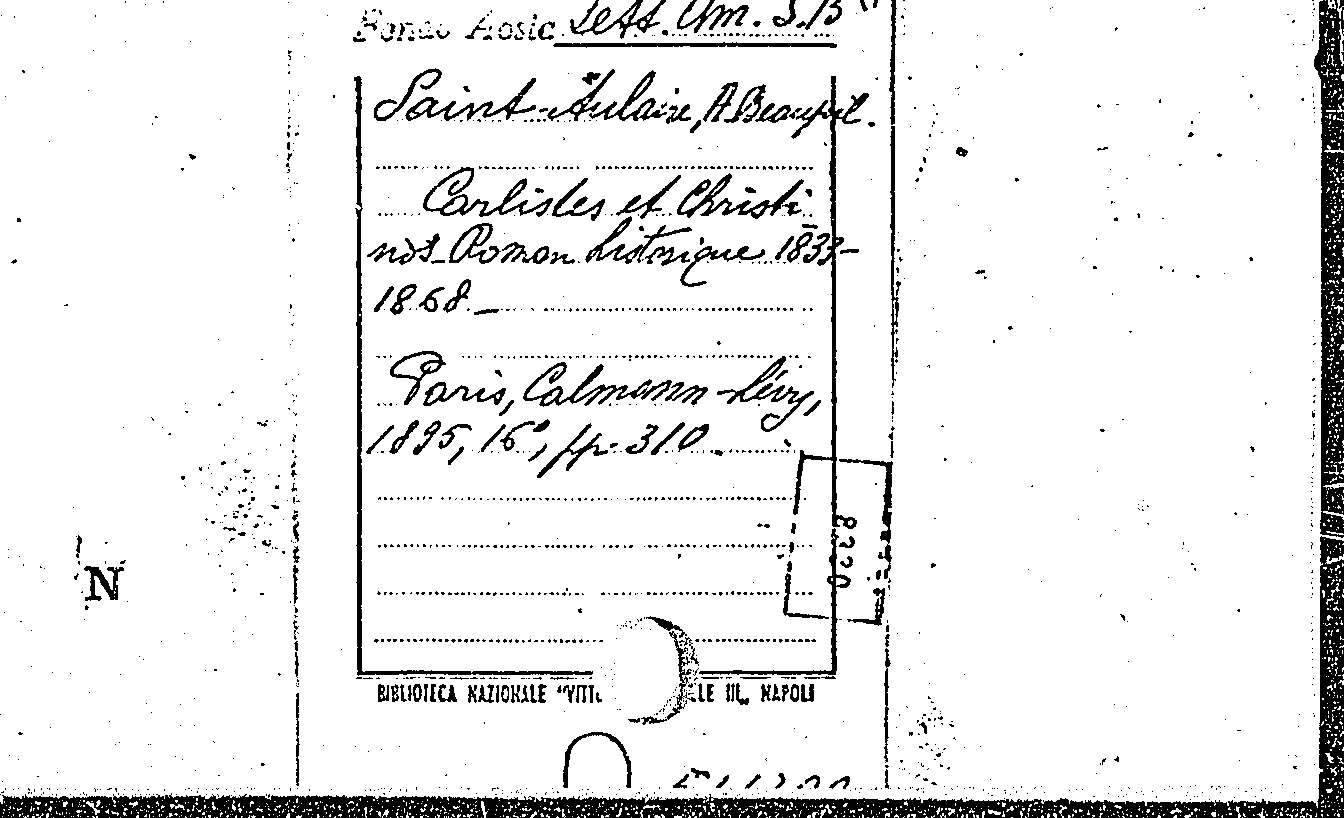 Fondo Aosta Lett. Am. S.B
Saint-Aulaire, A Beaupoil.
Carlistes et Christi
nos. Roman historique 1833-
1868.
Paris, Calmann-Lévy,
1895, 16°, pp. 310.
N
BIBLIOTECA NAZIONALE "VITT LE III, NAPOLI